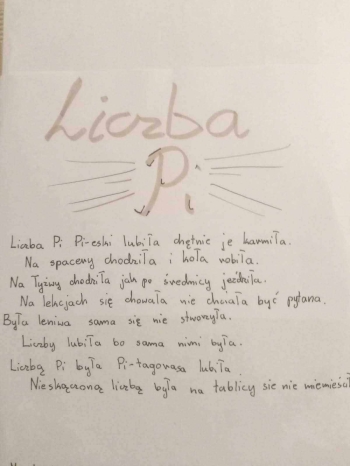 Liczba
Pi
Liczba Pi Pi-eski lubiła chętnie je karmiła.
Na spacery chodziła i koła robiła.
Na łyżwy chodziła jak po średnicy jeździła.
Na lekcjach się chowała nie chciała być pytana.
Była leniwa sama się nie stworzyła.
Liczby lubiła bo sama nimi była.
Liczbą Pi była Pi-tagorasa lubiła
Nieskączoną liczbą była na tablicy sie nie